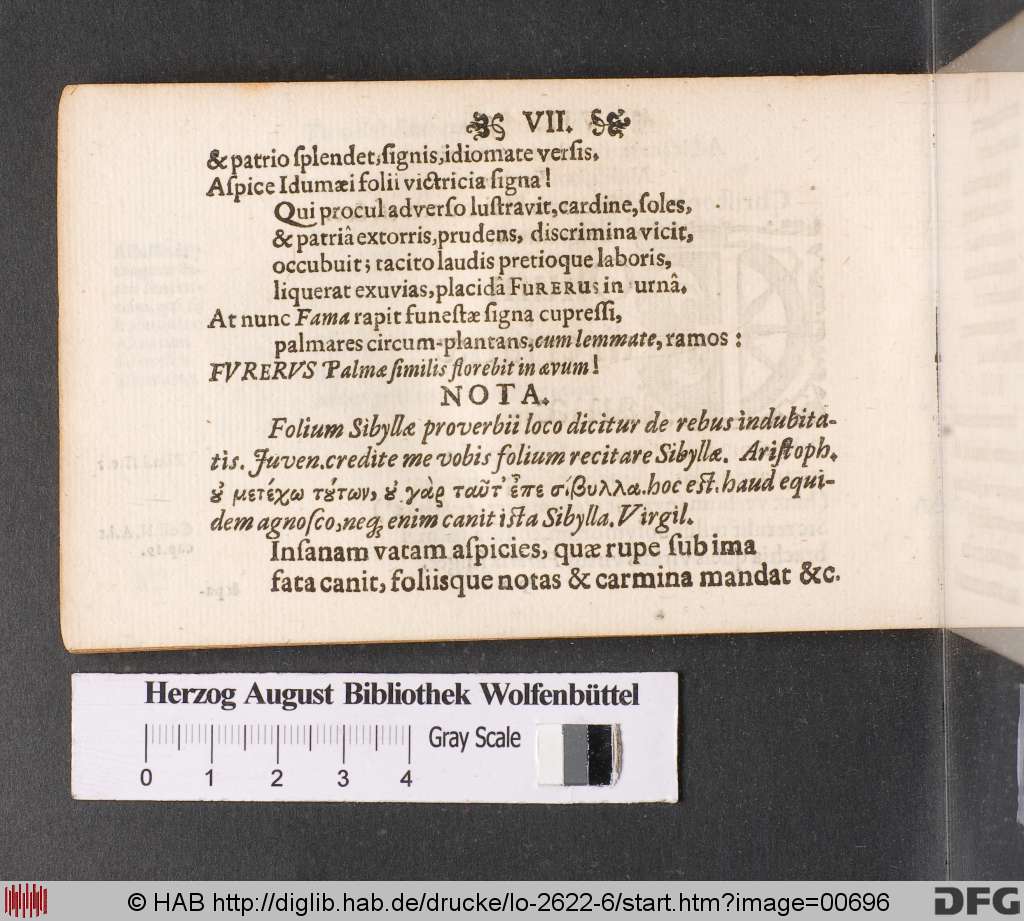 VII.
& patrio ſplendet, ſignis, idiomate verſis.
Aſpice Idumæi folii victricia ſigna!
Qui procul adverſo luſtravit, cardine, ſoles,
& patriâ extorris, prudens, diſcrimina vicit,
occubuit; tacito laudis pretioque laboris,
liquerat exuvias, placidâ FURERUS in urnâ.
At nunc Fama rapit funeſtæ ſigna cupreſſi,
palmares circum-plantans, cum lemmate, ramos:
FVRERVS Palmæ ſimilis florebit in ævum!
NOTA.
Folium Sibyllæ proverbii loco dicitur de rebus indubita-
tis. Juven. credite me vobis folium recitare Sibyllæ. Ariſtoph.
ȣ̓ μετέχω τȣ́των, ȣ̓ γὰρ ταῦτ' εἶπε σίβυλλα. hoc eſt. haud equi-
dem agnoſco, neq; enim canit iſta Sibylla. Virgil.
Inſanam vatam aſpicies, quæ rupe ſub ima
fata canit, foliisque notas & carmina mandat &c.
Herzog August Bibliothek Wolfenbüttel
Gray Scale
0 1 2 3 4
© HAB http://diglib.hab.de/drucke/lo-2622-6/start.htm?image=00696
DFG